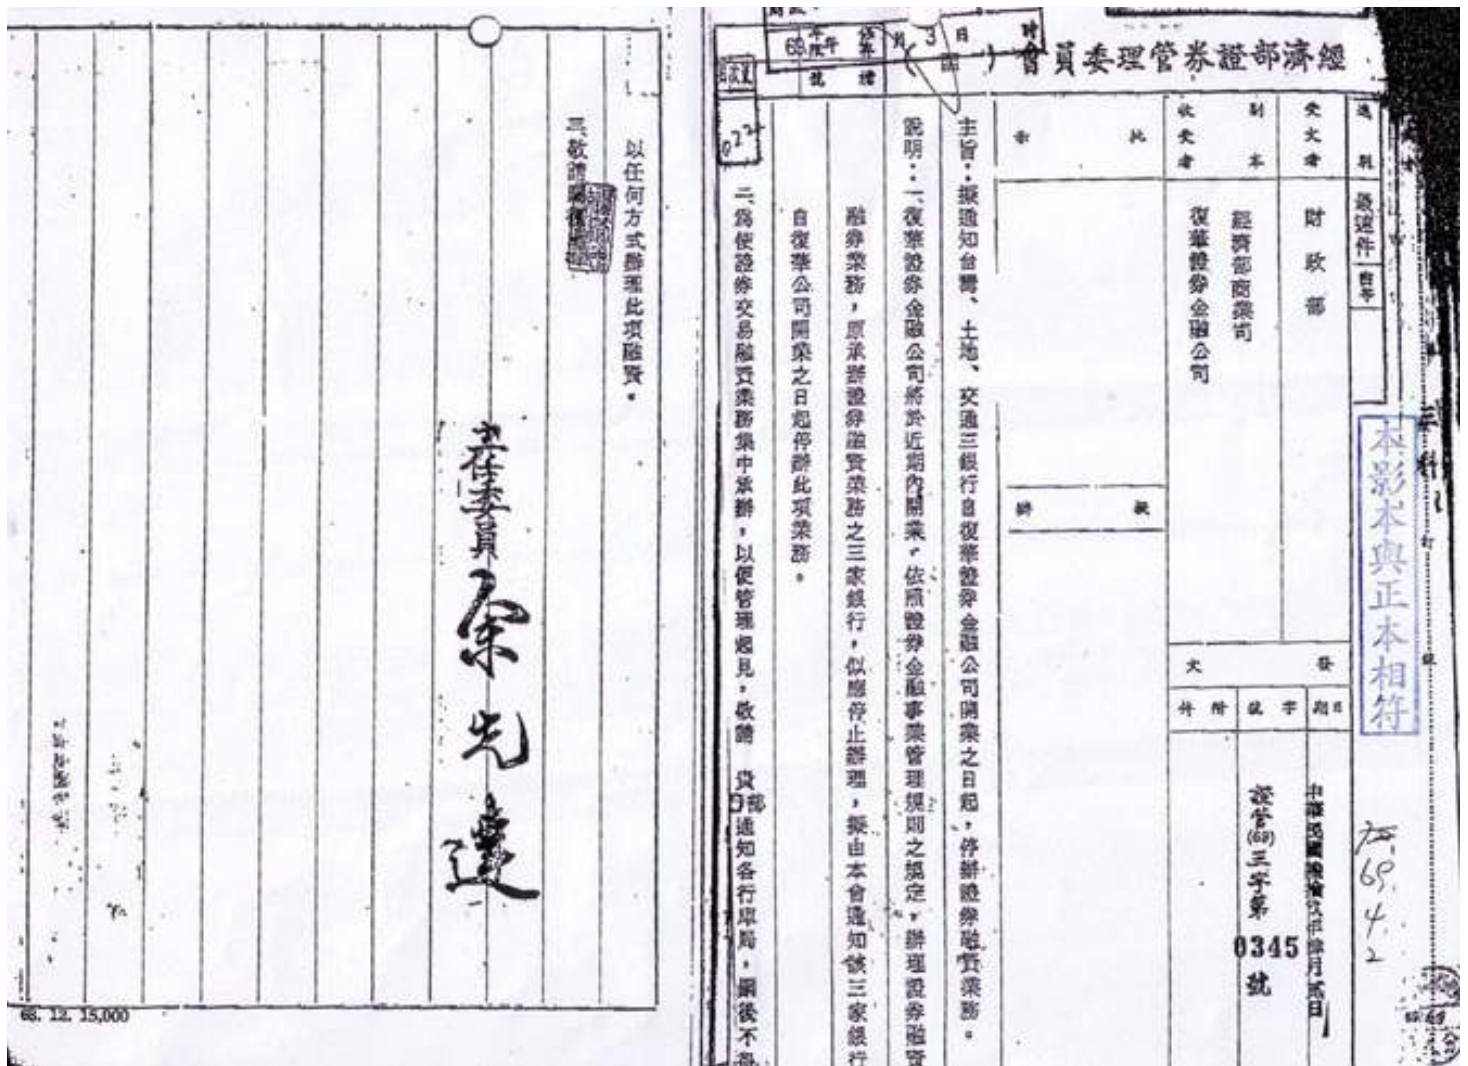 經濟部證券管理委員會
速別
最速件
受文者
財政部
副本
收受者
經濟部商業司
復華證券金融公司
批
示
擬
辦
發
文
日期
字號
附件
中華民國陸拾玖年肆月貳日
證管(69)三字第
0345
號
本影本與正本相符
69.
4.
2
主旨：擬通知台灣、土地、交通三銀行自復華證券金融公司開業之日起，停辦證券融資業務。
說明：一、復華證券金融公司將於近期內開業，依照證券金融事業管理規則之規定，辦理證券融資
融券業務，原承辦證券融資業務之三家銀行，似應停止辦理，擬由本會通知該三家銀行
自復華公司開業之日起停辦此項業務。
二、為使證券交易融資業務集中承辦，以便管理起見，敬請 貴部通知各行庫局，嗣後不得
以任何方式辦理此項融資。
三、敬請
主任委員 余先達
68. 12. 15,000